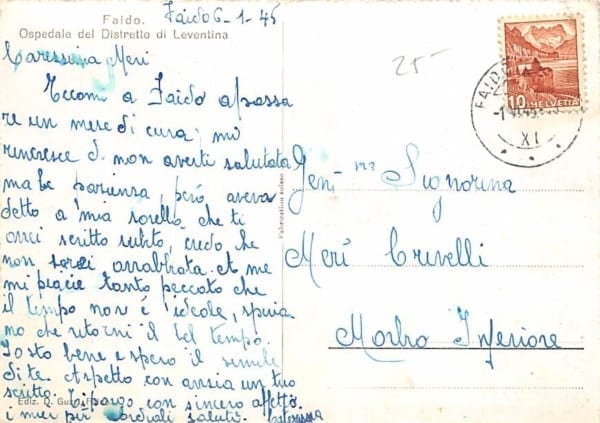 Faido.
Ospedale del Distretto di Leventina
Faido 6-1-45
Carissima Meri
Eccomi a Faido a passa
re un mese di cura; mi
rincresce di non averti salutata
ma la partenza, però, aveva
detto a mia sorella che ti
avrei scritto subito, credo che
non sarai arrabbiata. A me
mi piacie tanto peccato che
il tempo non è ideale, speria
mo che ritorni il bel tempo.
Io sto bene e spero il simile
di te. Aspetto con ansia un tuo
scritto. Ti porgo con sincero affetto
i miei più cordiali saluti.
Ediz. D.
Fabrication suisse
25-
FAIDO
XI
10 HELVETIA
Gent ma Signorina
Meri Crivelli
Morbio Inferiore